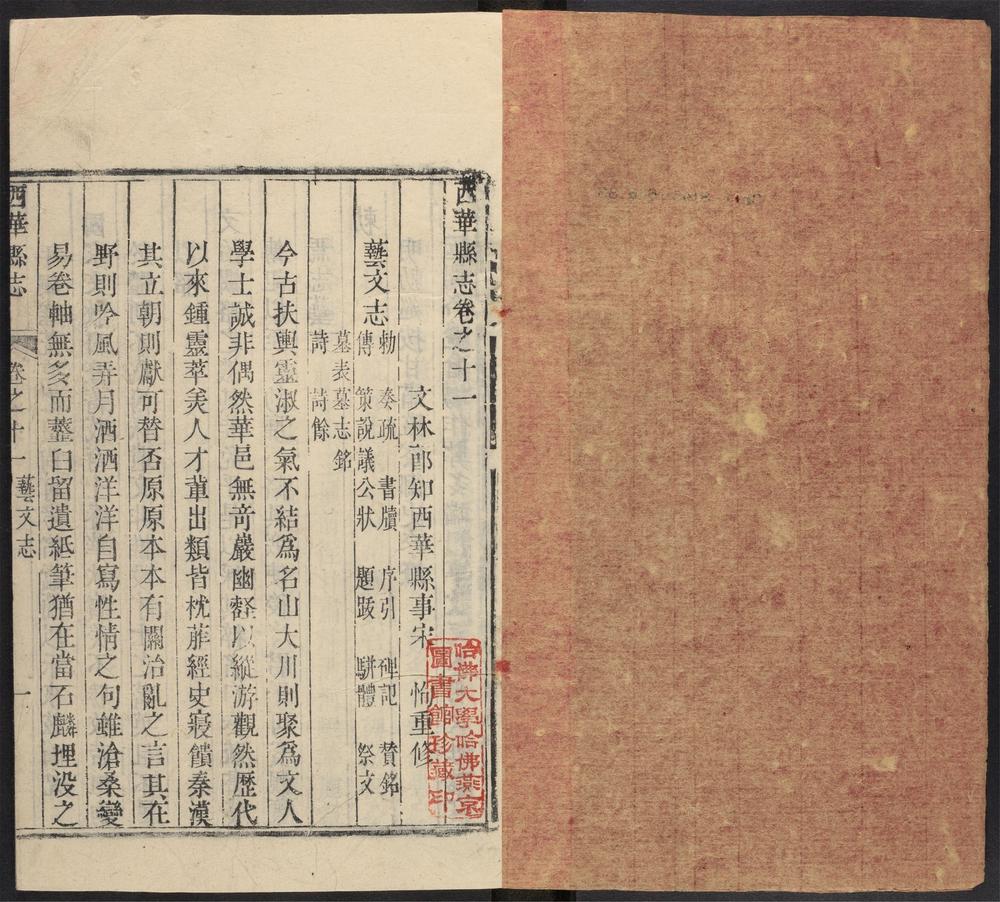 西華縣志卷之十一
文林郎知西華縣事宋 恂重修
藝文志
勅 奏疏 書牘 序引 碑記 贊銘
傳 策說議公狀 題跋 駢體 祭文
墓表墓志銘
詩 詩餘
今古扶輿靈淑之氣不結為名山大川則聚為文人
學士誠非偶然華邑無竒巖幽壑以縱游觀然歷代
以來鍾靈萃美人才軰出類皆枕葄經史寢饋秦漢
其立朝則獻可替否原原本本有關治亂之言其在
野則吟風弄月洒洒洋洋自寫性情之句雖滄桑變
易卷軸無多而虀臼留遺紙筆猶在當石麟埋没之
西華縣志 卷之十一 藝文志 一
哈佛大學哈佛燕京
圖書館珍藏印